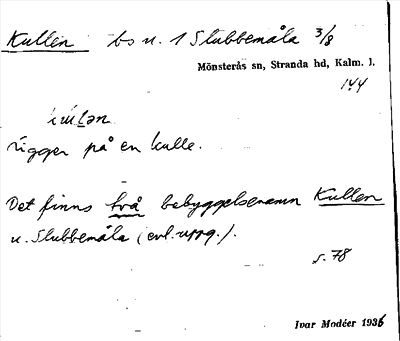 Kullen bs u. 1 Slubbemåla 3/8
Mönsterås sn, Stranda hd, Kalm. l.
144
ligger på en kulle.
Det finns två bebyggelsenamn Kullen
u. Slubbemåla (enl. uppg.).
s. 78
Ivar Modéer 1936